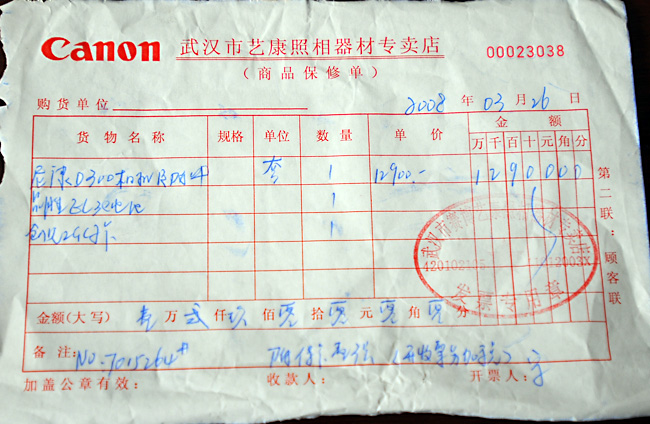 Canon 武汉市艺康照相器材专卖店 00023038
（商品保修单）
购货单位 2008 年 03 月 26 日
货物名称 规格 单位 数量 单价 金额
万 千 百 十 元 角 分
尼康D300机 套 1 12900.- 1 2 9 0 0 0 0
EL3电池 1
2G卡 1
第二联：顾客联
武汉市
发票专用章
金额(大写) 壹 万 贰 仟 玖 佰 零 拾 零 元 零 角 零 分
备注: NO.7015264
加盖公章有效: 收款人: 开票人: